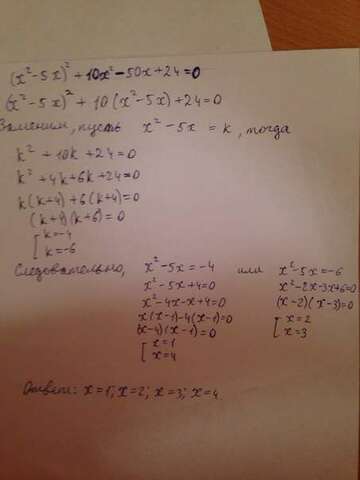 (x²-5x)²+10x²-50x+24=0
(x²-5x)²+10(x²-5x)+24=0
Заменим, пусть x²-5x=k, тогда
k²+10k+24=0
k²+4k+6k+24=0
k(k+4)+6(k+4)=0
(k+4)(k+6)=0
[k=-4
k=-6
Следовательно, x²-5x=-4 или x²-5x=-6
x²-5x+4=0 x²-2x-3x+6=0
x²-4x-x+4=0 (x-2)(x-3)=0
x(x-1)-4(x-1)=0 [x=2
(x-4)(x-1)=0 x=3
[x=1
x=4
Ответ: x=1; x=2; x=3; x=4